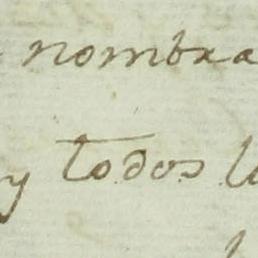 nombra
y todos l